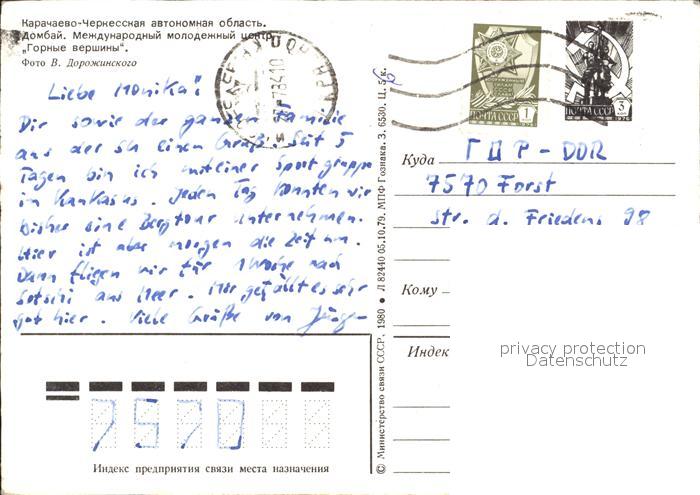 Карачаево-Черкесская автономная область.
Домбай. Международный молодежный центр
„Горные вершины“.
Фото В. Дорожинского
Liebe Monika!
Dir sowie der ganzen Familie
aus der einen Gruß. Seit 5
Tagen bin ich mit einer Sportgruppe
in Kaukasus. Jeden Tag konnten wir
bisher eine Bergtour unternehmen.
Hier ist aber morgen die Zeit um.
Dann fliegen wir für 1 Woche nach
Sotschi ans Meer. Mir gefällt es sehr
gut hier. Viele Grüße von
Индекс предприятия связи места назначения
7570
© Министерство связи СССР, 1980 ● Л 82440 05.10.79. МПФ Гознака. З. 6530. Ц. 5 к.
ПОЧТА СССР 1
ПОЧТА СССР 3
1976
Куда ГДР - DDR
7570 Forst
Str. d. Friedens 98
Кому
Индек
privacy protection
Datenschutz